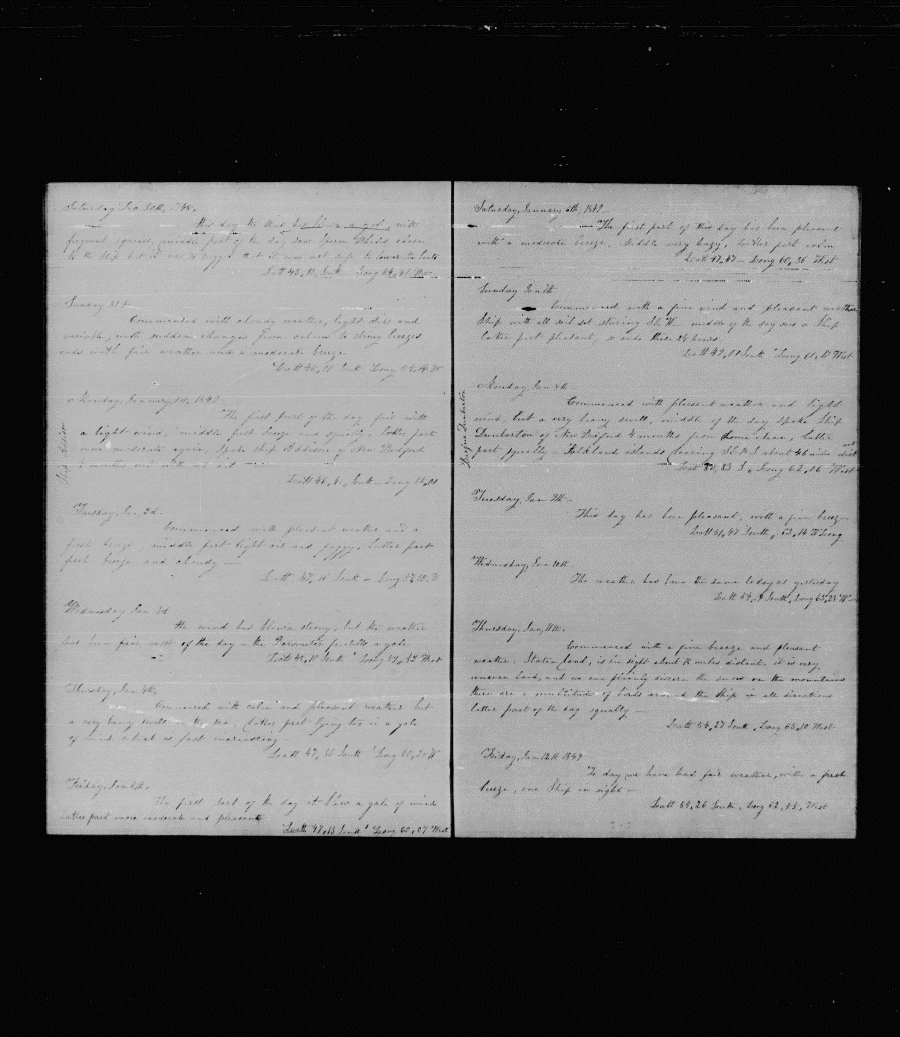 Saturday Dec 30th, 1848.
this day the wind has with
frequent squalls, middle part of the day saw Sperm Whales close
to the ship but it was so rugged that it was not safe to lower the boats
Latt 45, South Long 59, 41 West
Sunday 31st
Commenced with cloudy weather, light airs and
variable, with sudden changes from calms to strong breezes
ends with fair weather and a moderate breeze
Latt 46, 21 South Long 58, W
Monday, January 1st, 1849
The first part of the day fair with
a light wind, middle fresh breeze and squally, latter part
more moderate again, Spoke ship Addison of New Bedford
months out with
Ship Addison
Latt 46, South Long
Tuesday, Jan 2d
Commenced with pleasant weather and a
fresh breeze, middle part light air and foggy, latter part
fresh breeze and cloudy —
Latt 47, 16 South — Long 57, 30, W
Wednesday Jan 3d
the wind has blown strong, but the weather
has been fair most of the day — the Barometer predicts a gale
Latt 48, 10 South Long 59, 52 West
Thursday, Jan 4th,
Commenced with calm and pleasant weather but
a very heavy swell on the sea, latter part lying too in a gale
of wind which is fast increasing
Latt 47, 36 South Long 60, 20 W
Friday, Jan 5th,
The first part of the day it blew a gale of wind
latter part more moderate and pleasant
Latt 47, 53 South Long 60, 07 West
Saturday, January 6th, 1849
The first part of this day has been pleasant
with a moderate breeze, Middle very hazy, latter part calm
Latt 47, 47 — Long 60, 36 West
Sunday Jan 7th
Commenced with a fine wind and pleasant weather
Ship with all sail set steering S. W. middle of the day saw a Ship
latter part pleasant, so ends these 24 hours.
Latt 49, 01 South Long 61, 17 West
Monday, Jan 8th —
Commenced with pleasant weather and light
wind, but a very heavy swell, middle of the day Spoke Ship
Dunbarton of New Bedford 4 months from home clean, latter
part squally — Falkland islands bearing about 46 miles dist
Spoke Dunbarton
Latt 50, 53 S, Long 62, 06 West
Tuesday, Jan 9th —
This day has been pleasant, with a fine breeze
Latt 51, 47 South, 63, 14 W Long
Wednesday, Jan 10th.
The weather has been the same today as yesterday
Latt 54, 9 South, Long 63, 23 W —
Thursday, Jan, 11th.
Commenced with a fine breeze and pleasant
weather, Staten land, is in sight about 12 miles distant, it is very
uneven land, and we can plainly discern the snow on the mountains
there are a multitude of birds around the ship in all directions
latter part of the day squally —
Latt 54, 27 South, Long 63, 10 West
Friday, Jan 12th 1849
To day we have had fair weather, with a fresh
breeze, one Ship in sight —
Latt 55, 26 South, Long 62, 55, West